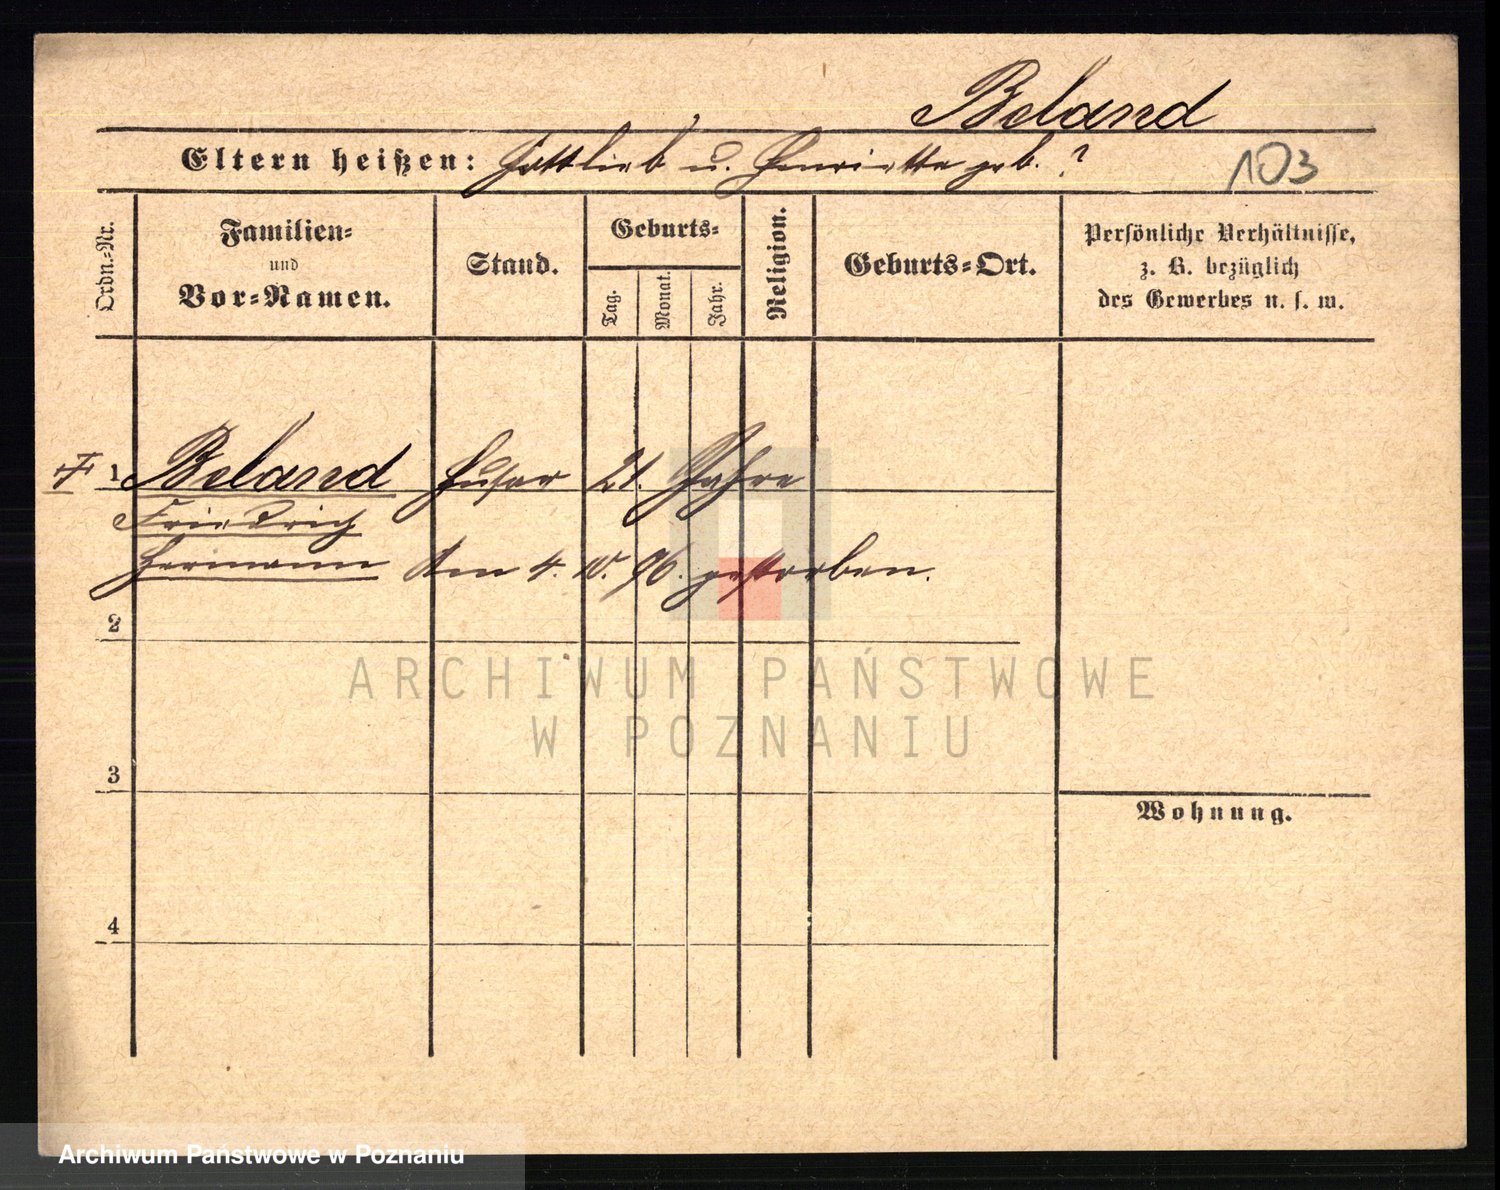 Beland
Eltern heißen: Gottlieb u. Henriette geb. ?
103
Ordn.-Nr.
Familien-
und
Vor-Namen.
Stand.
Geburts-
Tag.
Monat.
Jahr.
Religion.
Geburts-Ort.
Persönliche Verhältnisse,
z. B. bezüglich
des Gewerbes u. s. w.
1 Beland Husar 21. Jahre
Friedrich
Hermann Am 4. 10. 96. gestorben.
2
3
4
Wohnung.
ARCHIWUM PAŃSTWOWE
W POZNANIU
Archiwum Państwowe w Poznaniu